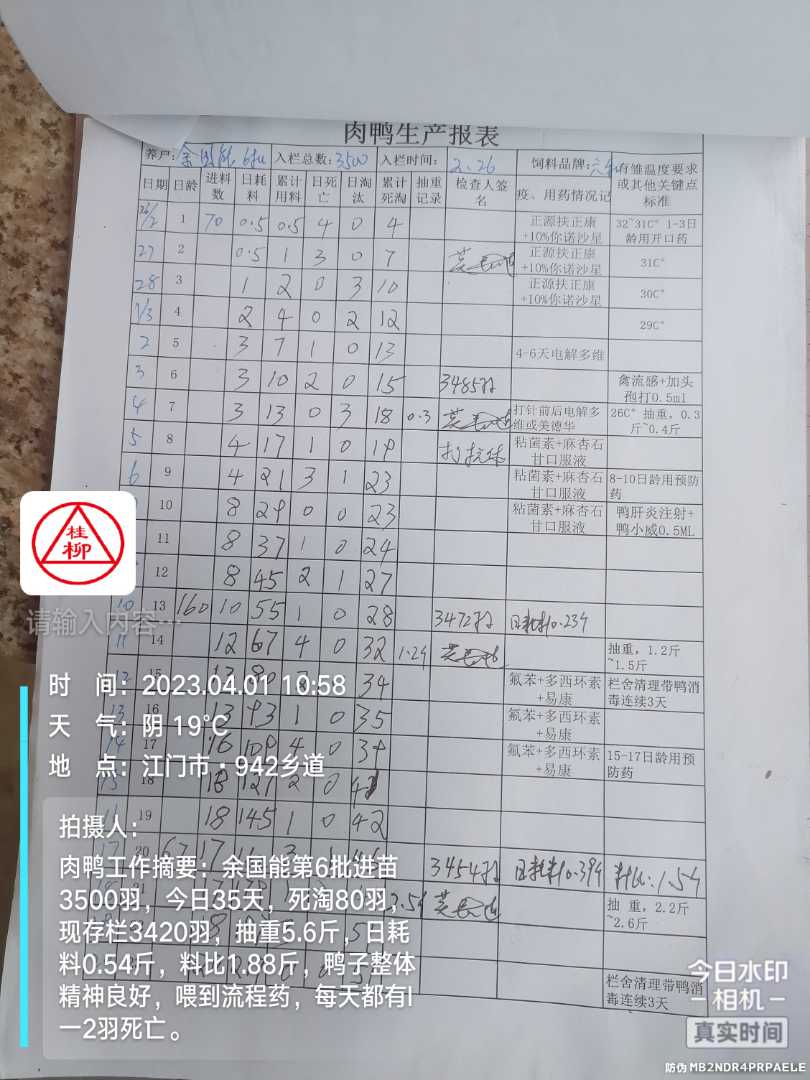 肉鸭生产报表
养户: 余国能 6批 入栏总数: 3500 入栏时间: 2.26 饲料品牌:
有雏温度要求或其他关键点标准
日期 日龄 进料数 日耗料 累计用料 日死亡 日淘汰 累计死淘 抽重记录 检查人签名 疫、用药情况记
26/2 1 70 0.5 0.5 4 0 4 正源扶正康+10%你诺沙星 32~31C° 1-3日龄用开口药
27 2 0.5 1 3 0 7 正源扶正康+10%你诺沙星 31C°
28 3 1 2 0 3 10 正源扶正康+10%你诺沙星 30C°
1/3 4 2 4 0 2 12 29C°
2 5 3 7 1 0 13 4-6天电解多维
3 6 3 10 2 0 15 3485羽 禽流感+加头孢打0.5ml
4 7 3 13 0 3 18 0.3 打针前后电解多维或美德华 26C° 抽重,0.3斤~0.4斤
5 8 4 17 1 0 19 粘菌素+麻杏石甘口服液
6 9 4 21 3 1 23 粘菌素+麻杏石甘口服液 8-10日龄用预防药
10 8 29 0 0 23 粘菌素+麻杏石甘口服液 鸭肝炎注射+鸭小威0.5ML
11 8 37 1 0 24
12 8 45 2 1 27
10 13 160 10 55 1 0 28 3472羽 日耗料0.23斤
11 14 12 67 4 0 32 1.2斤 抽重,1.2斤~1.5斤
12 15 13 80 34 氟苯+多西环素+易康 栏舍清理带鸭消毒连续3天
13 16 13 93 1 0 35 氟苯+多西环素+易康
14 17 16 109 4 0 39 氟苯+多西环素+易康 15-17日龄用预防药
15 18 18 127 2 0 41
19 18 145 1 0 42
17 20 67 17 3454羽 日耗料0.39斤 料比:1.5斤
21 抽 重,2.2斤~2.6斤
栏舍清理带鸭消毒连续3天
桂柳
请输入内容…
时 间:2023.04.01 10:58
天 气:阴 19℃
地 点:江门市·942乡道
拍摄人:
肉鸭工作摘要:余国能第6批进苗
3500羽,今日35天,死淘80羽,
现存栏3420羽,抽重5.6斤,日耗
料0.54斤,料比1.88斤,鸭子整体
精神良好,喂到流程药,每天都有l
一2羽死亡。
今日水印
相机
真实时间
防伪 MB2NDR4PRPAELE